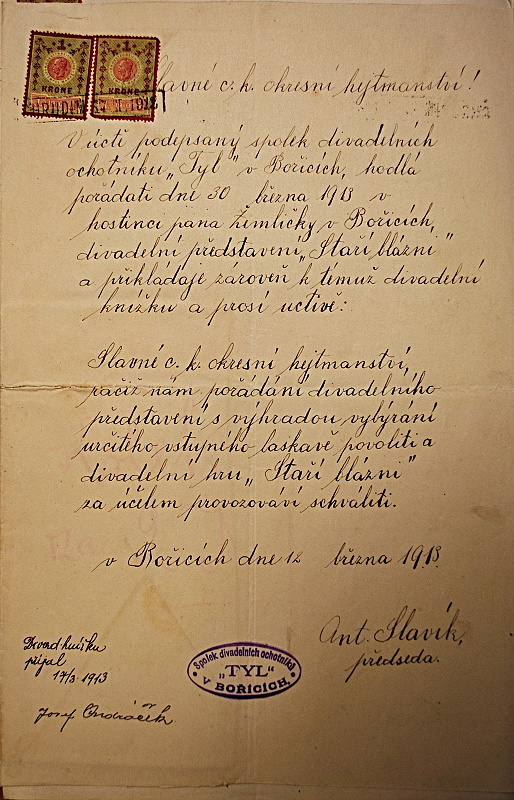 1 1
KRONE KRONE
Slavné c. k. okresní hejtmanství!
V úctě podepsaný spolek divadelních
ochotníku „Tyl" v Bořicích, hodlá
pořádati dne 30 března 1913 v
hostinci pana Žemličky v Bořicích,
divadelní představení „Staří blázni"
a přikládaje zároveň k témuž divadelní
knížku a prosí uctivě:
Slavné c. k. okresní hejtmanství,
račiž nám pořádání divadelního
představení s výhradou vybýrání
určitého vstupného laskavě povoliti a
divadelní hru „Staří blázni"
za účelem provozováví schváliti.
v Bořicích dne 12 března 1913.
Ant. Slavík,
předseda.
Divad knížku
přijal
17/3 1913
Josef Ondráček
Spolek divadelních ochotníků
„TYL"
V BOŘICÍCH.